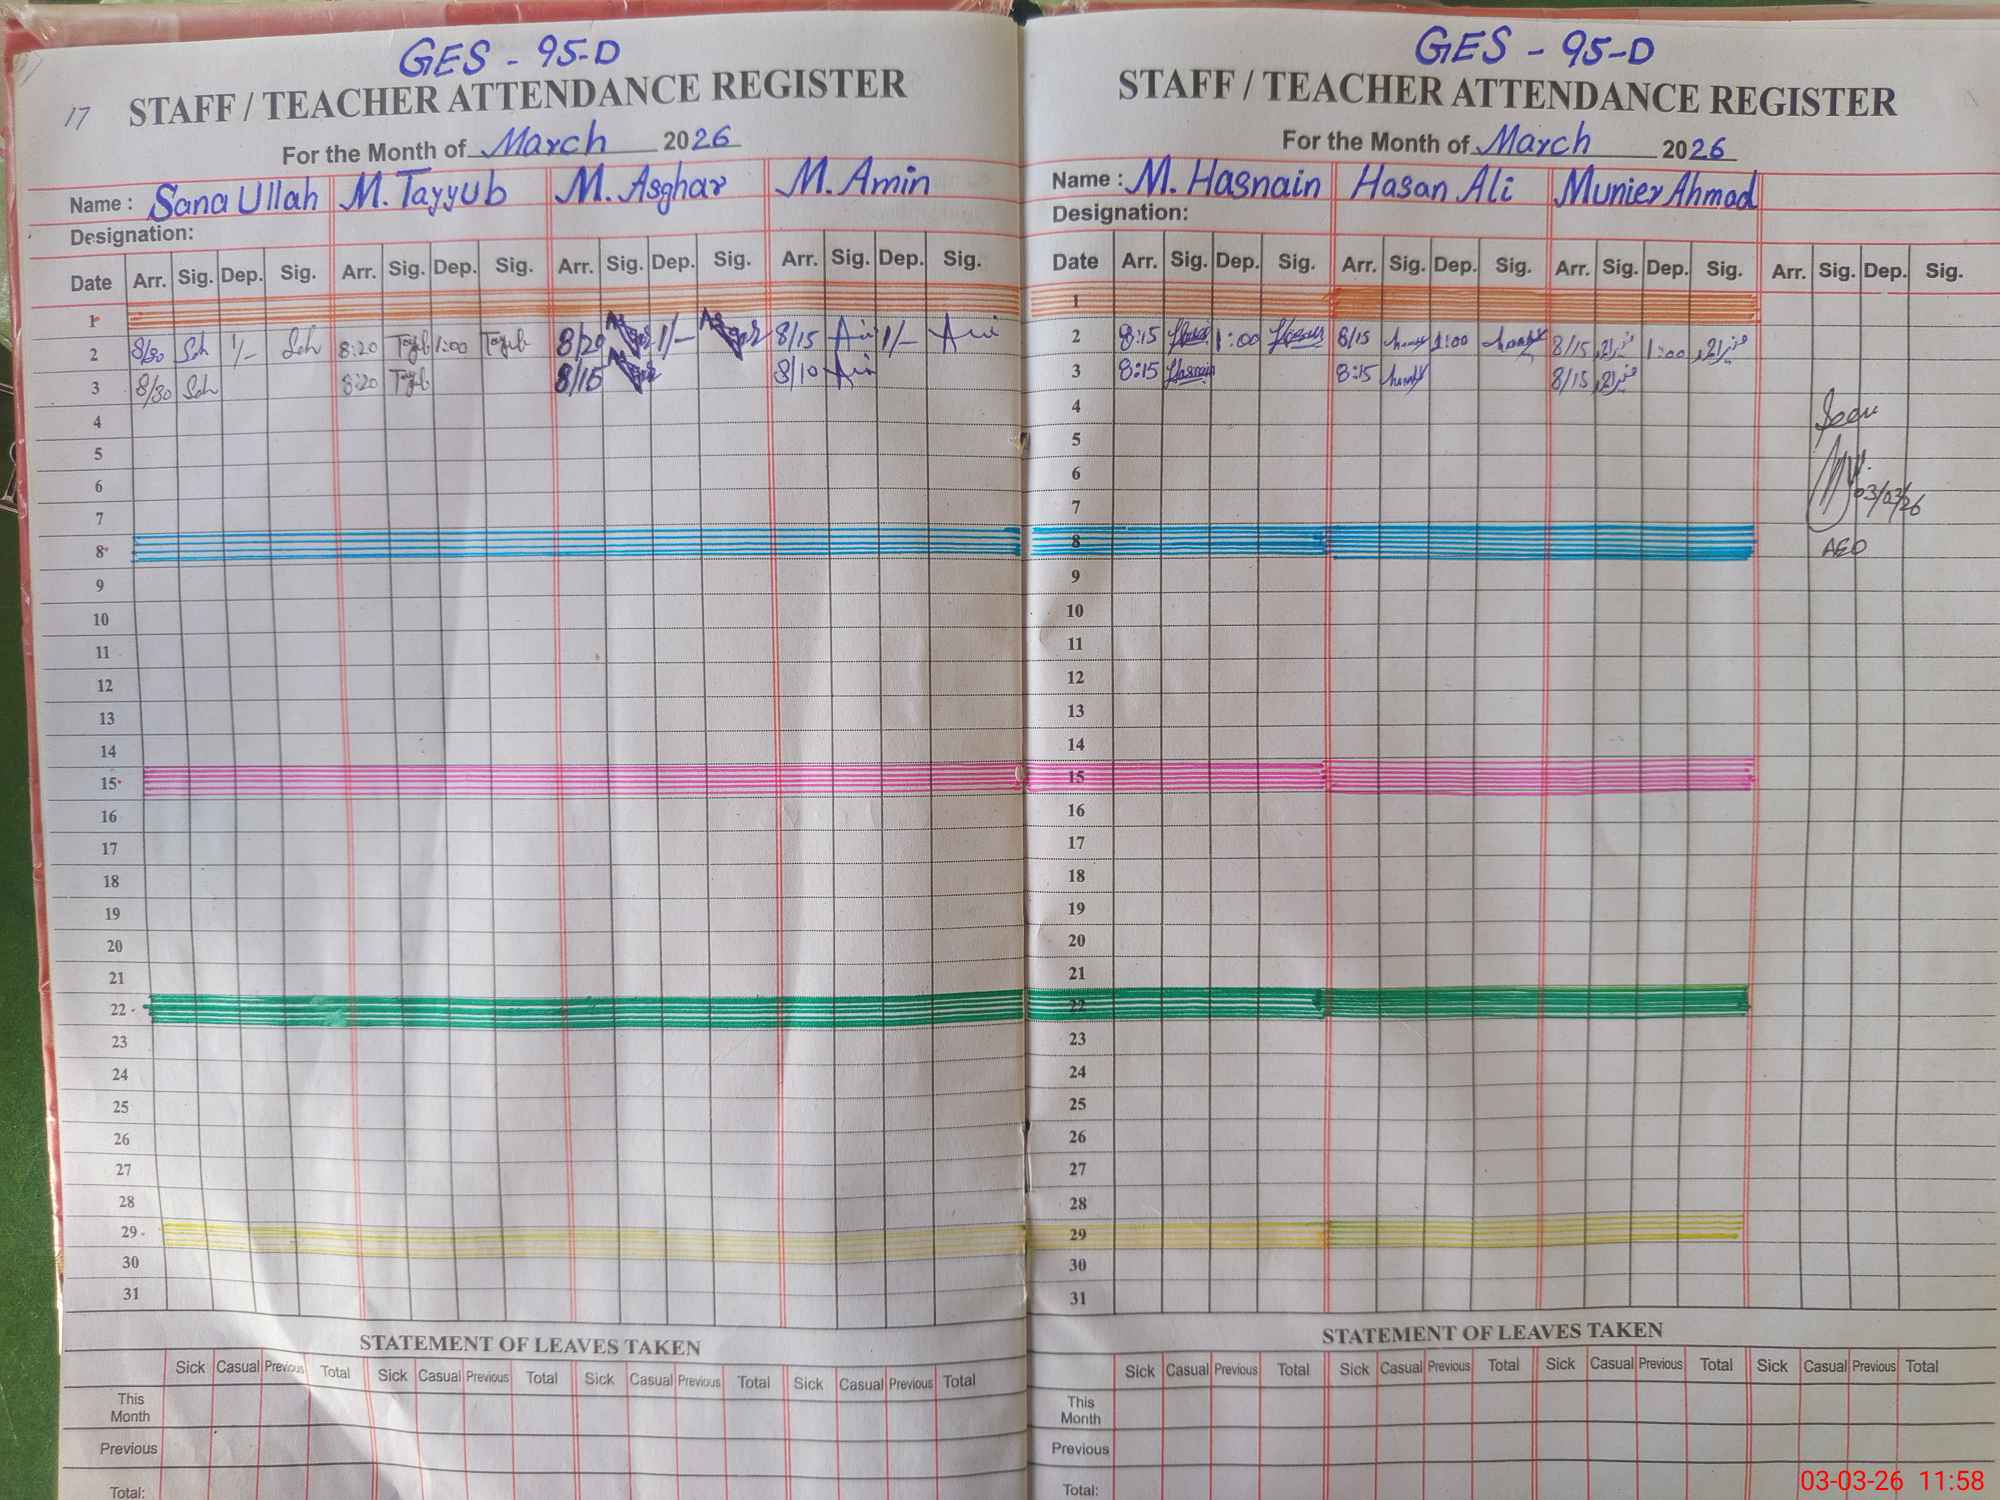 GES - 95-D
17 STAFF / TEACHER ATTENDANCE REGISTER
For the Month of March 2026
Name : Sana Ullah M. Tayyub M. Asghar M. Amin
Designation:
Date Arr. Sig. Dep. Sig. Arr. Sig. Dep. Sig. Arr. Sig. Dep. Sig. Arr. Sig. Dep. Sig.
1
2 8/30 1/- 8:20 Tayub 1:00 Tayub 8/20 1/- 8/15 1/-
3 8/30 8:20 Tayub 8/15 8/10
4
5
6
7
8
9
10
11
12
13
14
15
16
17
18
19
20
21
22
23
24
25
26
27
28
29
30
31
STATEMENT OF LEAVES TAKEN
Sick Casual Previous Total Sick Casual Previous Total Sick Casual Previous Total Sick Casual Previous Total
This Month
Previous
Total:
GES - 95-D
STAFF / TEACHER ATTENDANCE REGISTER
For the Month of March 2026
Name : M. Hasnain Hasan Ali Munier Ahmad
Designation:
Date Arr. Sig. Dep. Sig. Arr. Sig. Dep. Sig. Arr. Sig. Dep. Sig. Arr. Sig. Dep. Sig.
1
2 8:15 1:00 8/15 1:00 8/15 منیر احمد 1:00 منیر احمد
3 8:15 Hasnain 8:15 8/15 منیر احمد
4
5
6
7
8
9
10
11
12
13
14
15
16
17
18
19
20
21
22
23
24
25
26
27
28
29
30
31
Seen
03/03/26
AEO
STATEMENT OF LEAVES TAKEN
Sick Casual Previous Total Sick Casual Previous Total Sick Casual Previous Total Sick Casual Previous Total
This Month
Previous
Total:
03-03-26 11:58